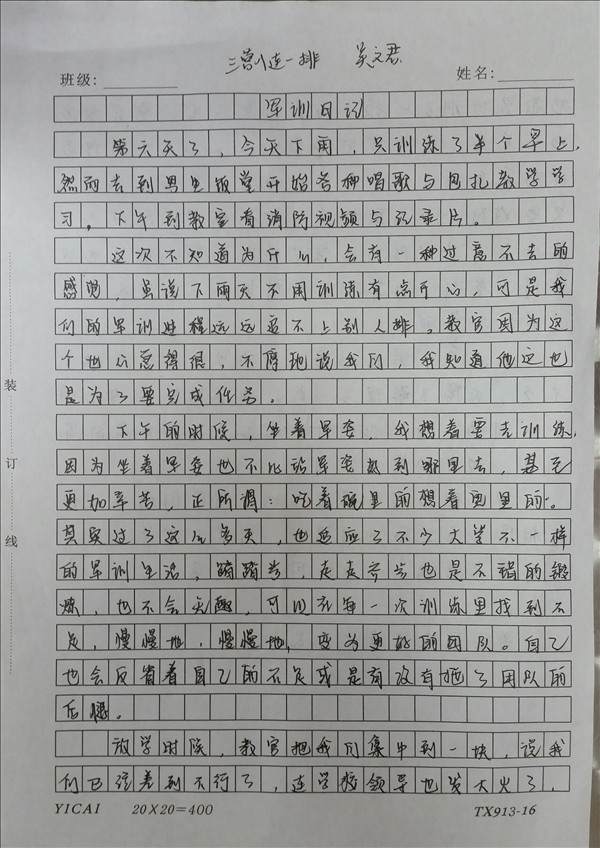 三营八连一排 吴文君
班级: 姓名:
军训日记
第六天了，今天下雨，只训练了半个早上，
然而去到男生饭堂开始各种唱歌与包扎教学学
习。下午到教室看消防视频与纪录片。
这次不知道为什么，会有一种过意不去的
感觉，虽说下雨天不用训练有点开心，可是我
们的军训进程远远追不上别人排。教官因为这
个也心急得很，不停地说我们，我知道他这也
是为了要完成任务。
下午的时候，坐着军姿，我想着要去训练，
因为坐着军姿也不比站军姿好到哪里去，甚至
更加辛苦，正所谓：吃着碗里的想着里的。
其实过了这么多天，也适应了不少大学不一样
的军训生活，踏踏步，走走齐步也是不错的锻
炼，也不会无趣，可以在每一次训练里找到不
足，慢慢地，慢慢地，变为更好的团队。自己
也会反省着自己的不足或是有没有拖了团队的
后腿。
放学时候，教官把我们集中到一块，说我
们已经差到不行了，连学校领导也发大火了，
装
订
线
YICAI 20×20=400 TX913-16